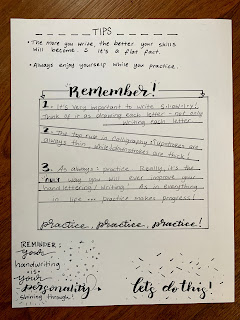 TIPS
• The more you write, the better your skills
will become. & it's a flat fact.
• Always enjoy yourself while you practice.
Remember!
1. It's very important to write
Think of it as drawing each letter - not only
writing each letter.
2. The top rule in Calligraphy! upstrokes are
always thin while downstrokes are thick!
3. As always! practice. Really, it's the
*only* way you will ever improve your
hand lettering/writing! As in everything
in life --- practice makes progress!
practice, practice, practice!
REMINDER:
your
handwriting
is
your
personality
shining through!
let's do this!